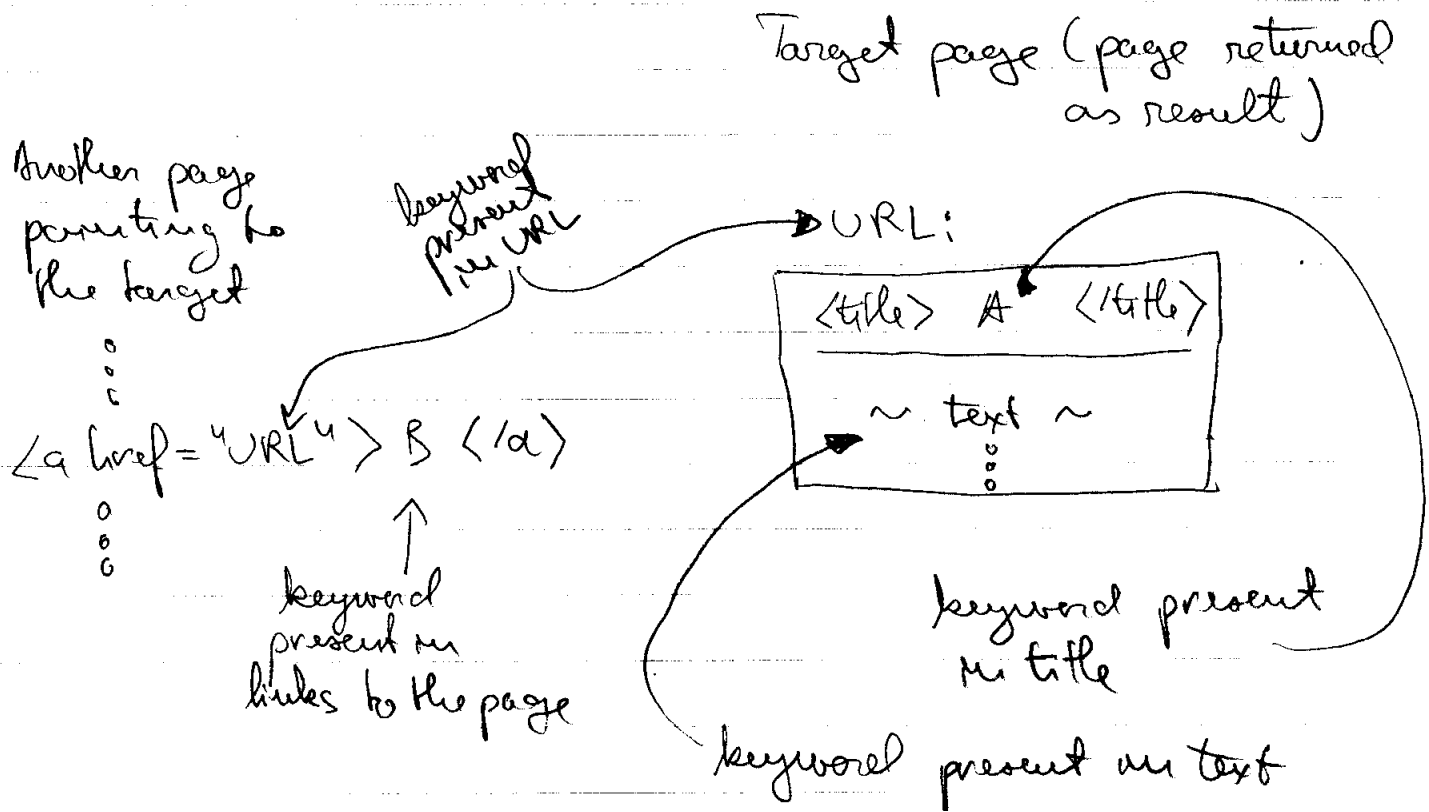 Target page (page returned
as result)
Another page
pointing to
the target
keyword
present
in URL
URL:
<title> A </title>
~ text ~
<a href="URL"> B </a>
keyword
present in
links to the page
keyword present
in title
keyword present in text